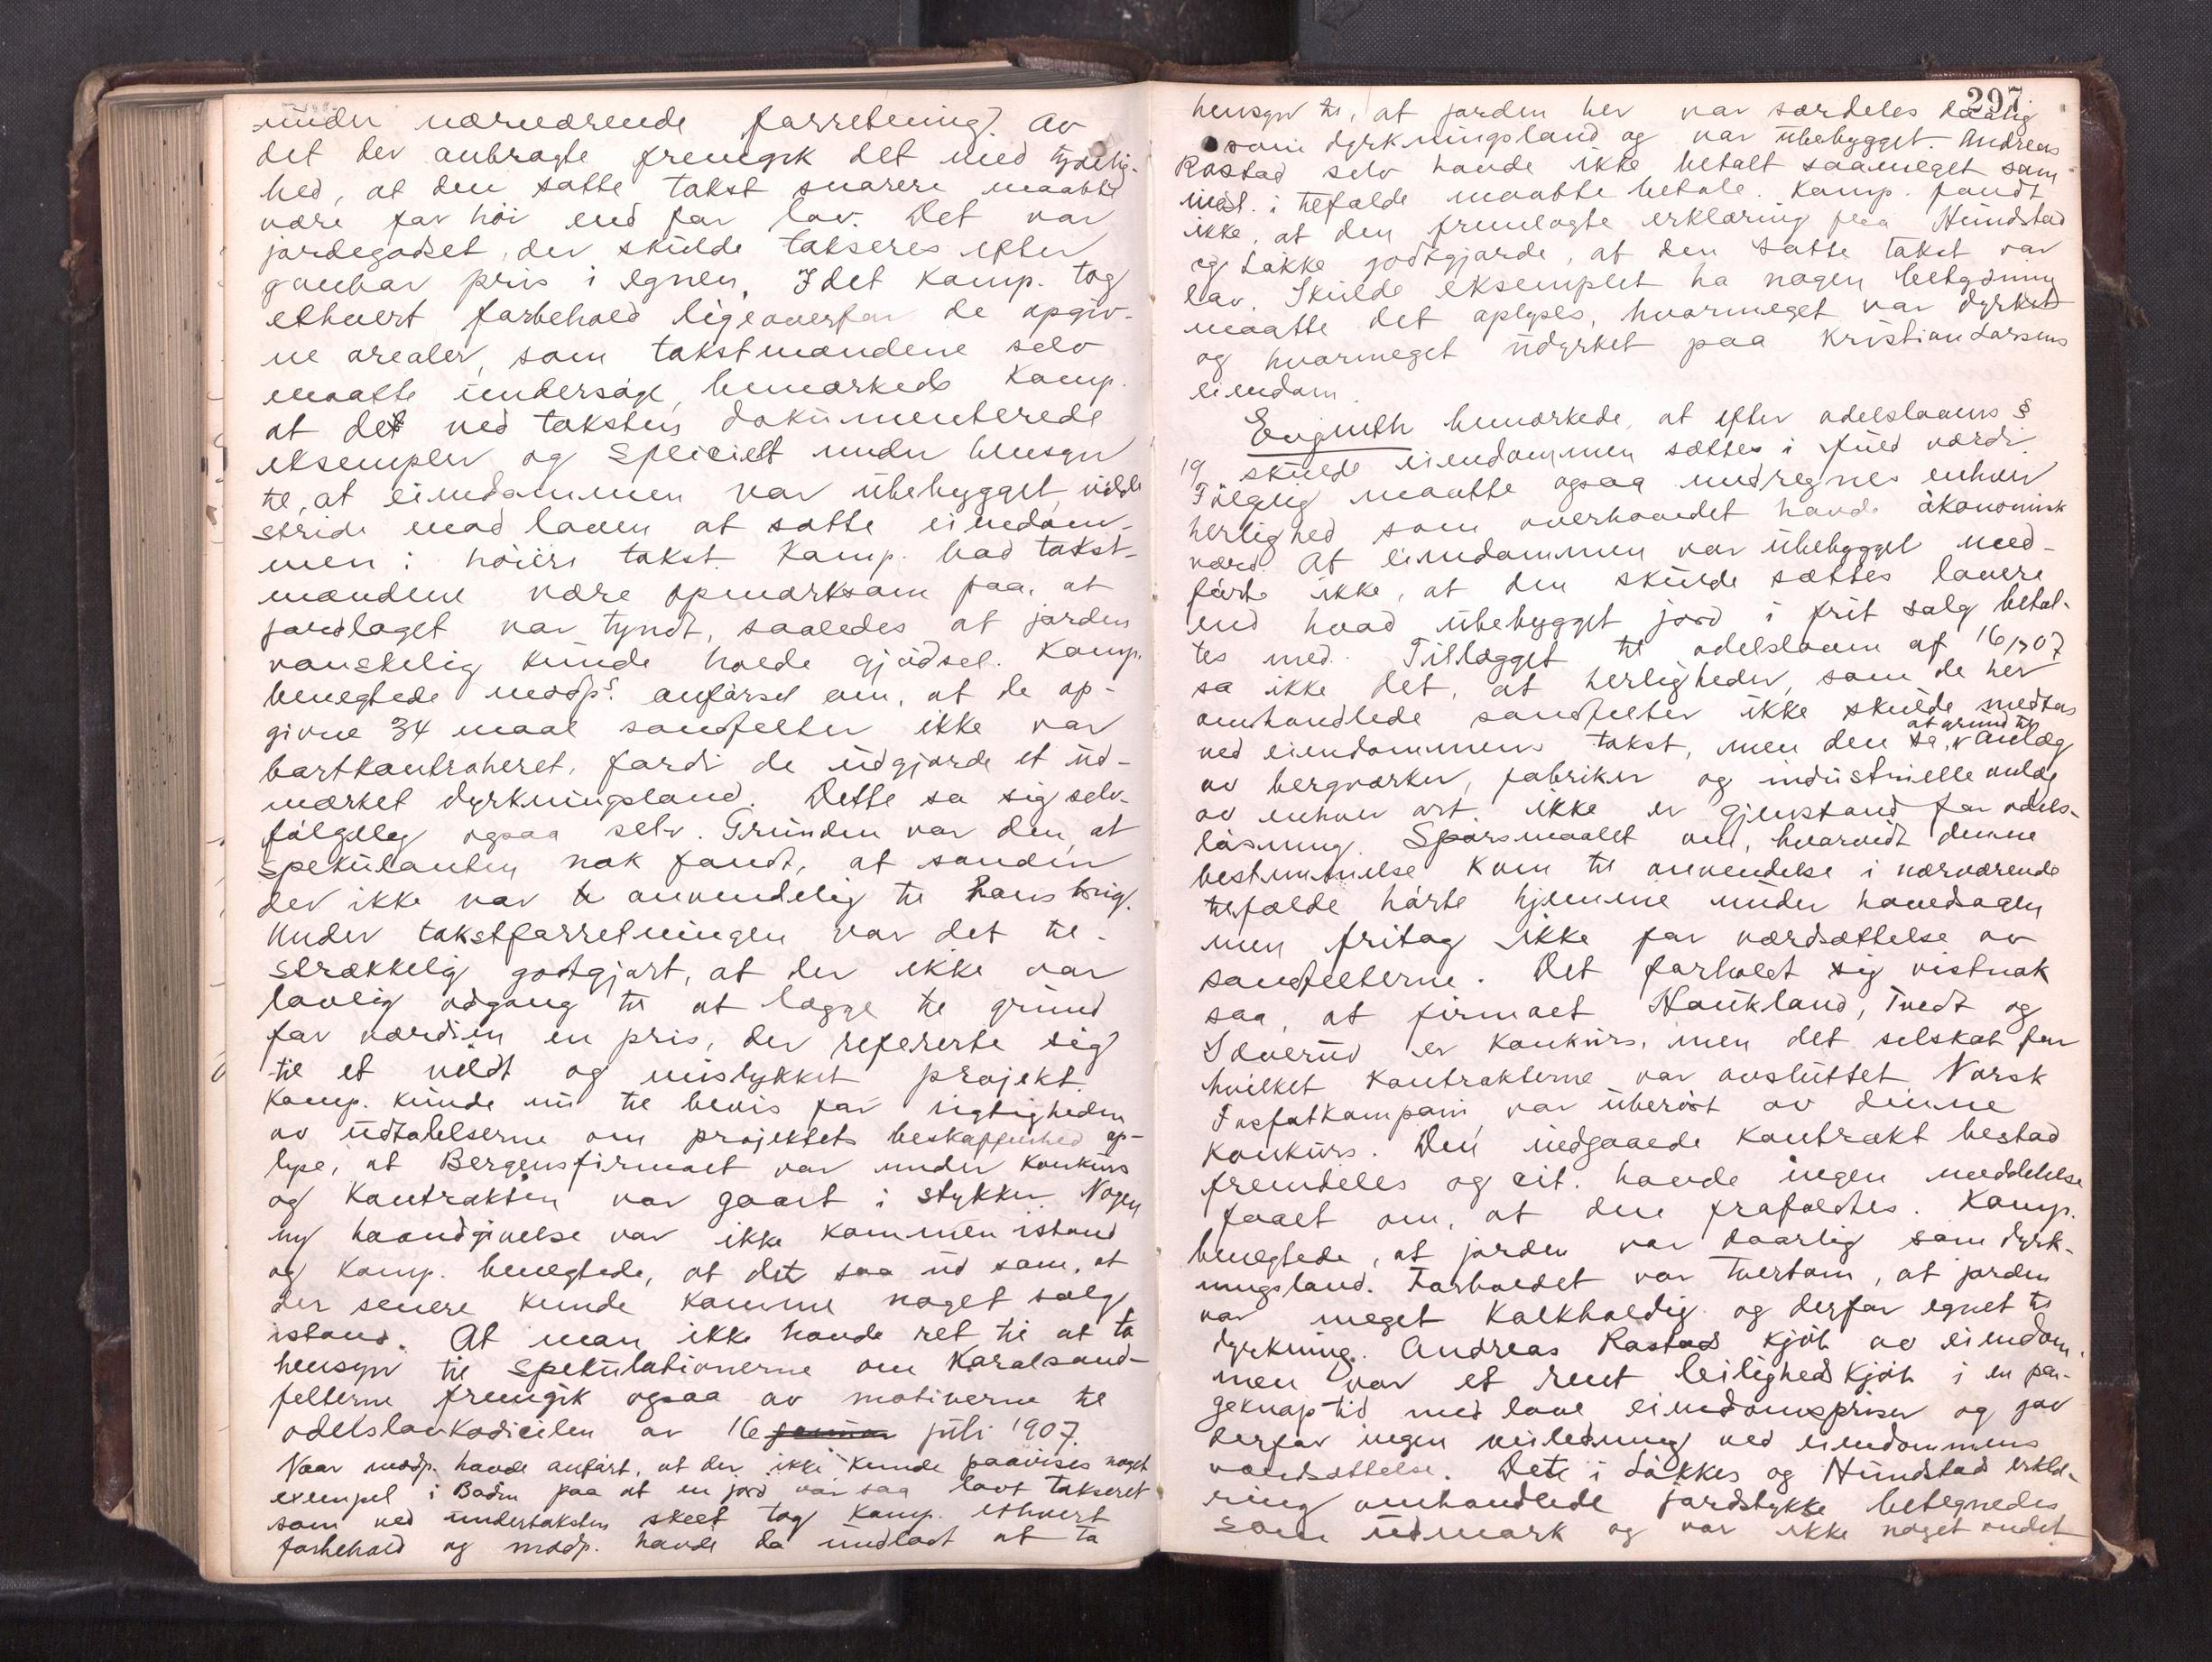 under nærværende forretning. Av
det der anbragte fremgik det med tydelig-
hed, at den satte takst snarere maatte
være for høi end for lav. Det var
jordegodset, der skulde takseres efter
gaubar pris i egnen. Idet Komp. tog
ethvert forbehold ligeoverfor de opgiv-
ne arealer, som takstmændene selv
maatte undersøge, bemærkede Komp.
at det ved taksten dokumenterede
eksempler og specielt under hensyn
til, at eiendommen var ubebygget, vilde
stride mod loven at sætte eiendom-
men i høiere takst. Komp. bad takst-
mændene være opmærksom paa, at
jordlaget var tyndt, saaledes at jorden
vanskelig kunde holde gjødsel. Komp.
benegtede modp.s anførsel om, at de op-
givne 34 maal sandfelter ikke var
bortkontraheret, fordi de udgjorde et ud-
mærket dyrkningsland. Dette sa sig selv-
følgelig ogsaa selv. Grunden var den, at
spekulanten nok fandt, at sanden
der ikke var anvendelig til hans brug.
Under takstforretningen var det til-
strækkelig godtgjort, at der ikke var
lovlig adgang til at lægge til grund
for værdien en pris, der refererte sig
til et vildt og mislykket projekt.
Komp. kunde nu til bevis for rigtigheden
av udtalelserne om projektets beskaffenhed op-
lyse, at Bergensfirmaet var under konkurs
og kontrakten var gaaet i stykker. Nogen
ny haandgivelse var ikke kommen istand
og Komp. benegtede, at det saa ud som, at
der senere kunde komme noget salg
istand. At man ikke havde ret til at ta
hensyn til spekulationerne om Koralsand-
felterne fremgik ogsaa av motiverne til
odelslovkodicilen av 16 juli 1907.
Naar modp. havde anført, at der ikke kunde paavises noget
exempel i Bodin paa at en jord var saa lavt takseret
som ved undertaksten skeet tog Komp. ethvert
forbehold og modp. havde da undladt at ta
297
hensyn til, at jorden her var særdeles daarlig
som dyrkningsland og var ubebygget. Andreas
Rastad selv havde ikke betalt saameget som
indst. i tilfælde maatte betale. Komp. fandt
ikke, at den fremlagte erklæring fra Hundstad
og Løkke godtgjorde, at den satte takst var
lav. Skulde eksemplet ha nogen betydning
maatte det oplyses, hvormeget var dyrket
og hvormeget udyrket paa Kristian Larsens
eiendom.
Engneth bemærkede, at efter odelslovens §
19 skulde eiendommen sættes i fuld værdi.
Følgelig maatte ogsaa medregnes enhver
herlighed som overhovedet havde økonomisk
værd. At eiendommen var ubebygget med-
førte ikke, at den skulde sættes lavere
end hvad ubebygget jord i frit salg betal-
tes med. Tillægget til odelsloven af 16/7 07
sa ikke det, at herligheder, som de her
omhandlede sandfelter ikke skulde medtas
ved eiendommens takst, men den sa, at grund til anlæg
av bergværker, fabriker og industrielle anlæg
av enhver art ikke er gjenstand for odels-
løsning. Spørsmaalet om, hvorvidt denne
bestemmelse kom til anvendelse i nærværende
tilfælde hørte hjemme under hovedsagen
men fritog ikke for værdsættelse av
sandfelterne. Det forholdt sig vistnok
saa, at firmaet Haukland, Tvedt og
Sæverud er konkurs, men det selskab for
hvilket kontrakterne var avsluttet, Norsk
Fosfatkompani, var uberørt av denne
konkurs. Den indgaaede kontrakt bestod
fremdeles og cit. havde ingen meddelelse
faaet om, at den frafaldtes. Komp.
benegtede, at jorden var daarlig som dyrk-
ningsland. Forholdet var tvertom, at jorden
var meget kalkholdig og derfor egnet til
dyrkning. Andreas Rastads kjøb av eiendom-
men var et rent leilighedskjøb i en pen-
geknap tid med lave eiendomspriser og gav
derfor ingen veiledning ved eiendommens
værdsættelse. Dete i Løkkes og Hundstad erklæ-
ring omhandlede jordstykke betegnedes
som udmark og var ikke noget andet